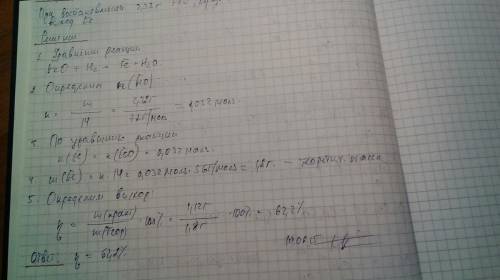 При восстановлении 2,32г FeO
выход Fe
Решение
1. Уравнение реакции
FeO + H₂ = Fe + H₂O
2. Определим n(FeO)
n = m / M = 2,32г / 72г/моль = 0,032 моль
3. По уравнению реакции
n(Fe) = n(FeO) = 0,032 моль
4. m(Fe) = n · M = 0,032 моль · 56г/моль = 1,8г – теоретич. масса
5. Определим выход
η = m(практ) / m(теор) · 100% = 1,12г / 1,8г · 100% = 62,2%
Ответ: η = 62,2%